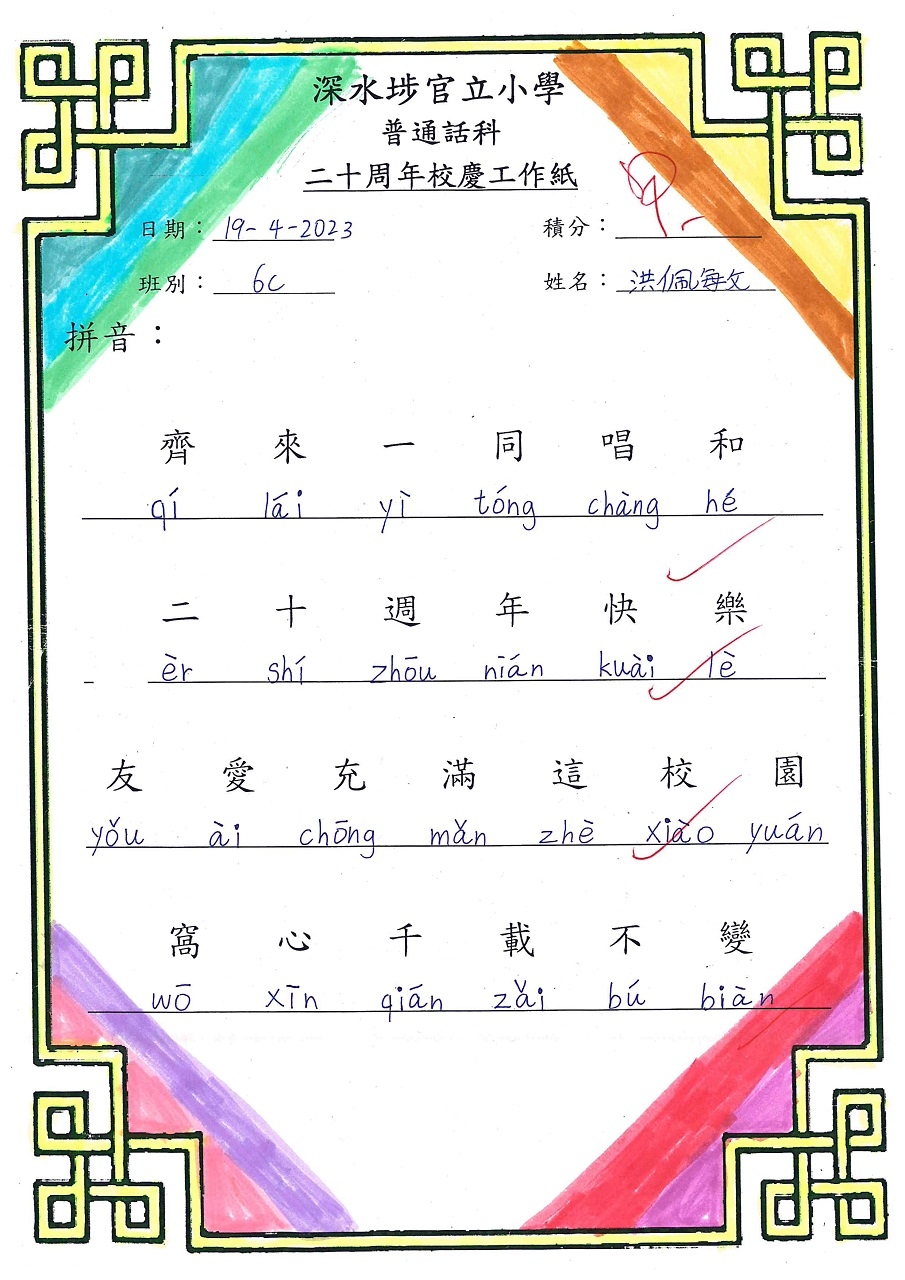 深水埗官立小學
普通話科
二十周年校慶工作紙
日期：19-4-2023 積分：甲-
班別：6C 姓名：洪佩敏文
拼音：
齊 來 一 同 唱 和
qí lái yì tóng chàng hé
二 十 週 年 快 樂
èr shí zhōu nián kuài lè
友 愛 充 滿 這 校 園
yǒu ài chōng mǎn zhè xiào yuán
窩 心 千 載 不 變
wō xīn qián zǎi bú biàn